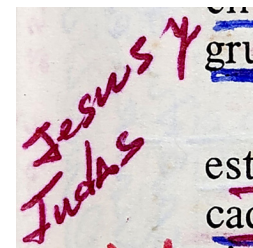 Jesus y
Judas
gru
est